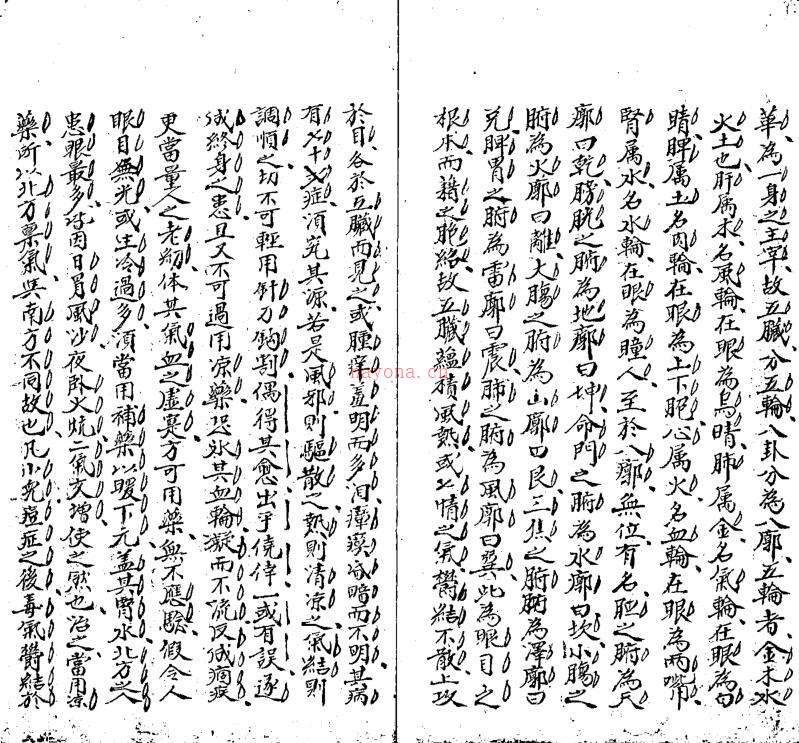 華為一身之主宰故五臟分五輪八卦分為八廓五輪者金木水
火土也肝属木名風輪在眼為烏睛肺属金名氣輪在眼為白
睛脾属土名肉輪在眼為上下胞心属火名血輪在眼為兩嘴
腎属水名水輪在眼為瞳人至於八廓無位有名胆之腑為天
廓曰乾膀胱之腑為地廓曰坤命門之腑為水廓曰坎小腸之
腑為火廓曰離大腸之腑為山廓曰艮三焦之腑為澤廓曰
兑脾胃之腑為雷廓曰震肺之腑為風廓曰巽此為眼目之
根本而藉之胞絡故五臟蘊積風熱或七情之氣鬱結不散上攻
於目各於五臟而見之或腫痒羞明而多淚瘴瘼昏暗而不明其病
有七十二症須究其源若是風邪則驅散之熱則清凉之氣結則
調順之切不可輕用針刀鈎割偶得其愈出乎僥倖一或有誤逐
成終身之患且又不可過用凉藥恐氷其血輪凝而不流反成痼疾
更當量人之老幼体其氣血之虛實方可用藥無不應驗假令人
眼目無光或生冷過多須當用補藥以暖下元盖其腎水北方之人
患眼最多皆因日冒風沙夜卧火炕二氣交增使之然也治之當用凉
藥所以北方禀氣與南方不同故也凡小兒痘症之後毒氣鬱結於
nayona.cn